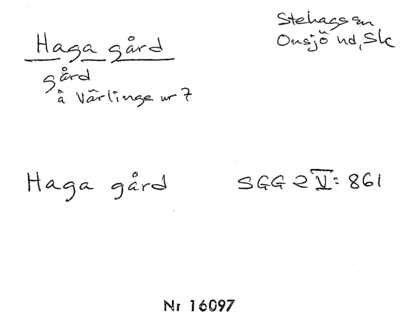 Haga gård
gård
å Värlinge nr 7
Stehags sn
Onsjö hd, Sk
Haga gård SGG 2 V: 861
Nr 16097